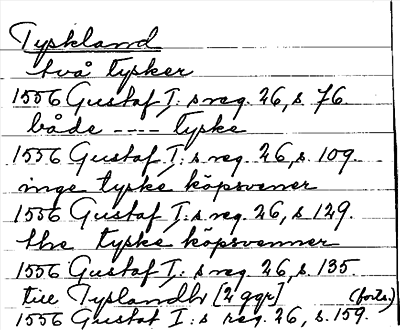 Tyskland
två tysker
1556 Gustaf I:s reg. 26, s. 76.
både ---- tyske
1556 Gustaf I:s reg. 26, s. 109.
inge tyske köpsvener
1556 Gustaf I:s reg. 26, s. 129.
the tyske köpsvenner
1556 Gustaf I:s reg. 26, s. 135.
till Tyslandh [2 ggr] (forts.)
1556 Gustaf I:s reg. 26, s. 159.